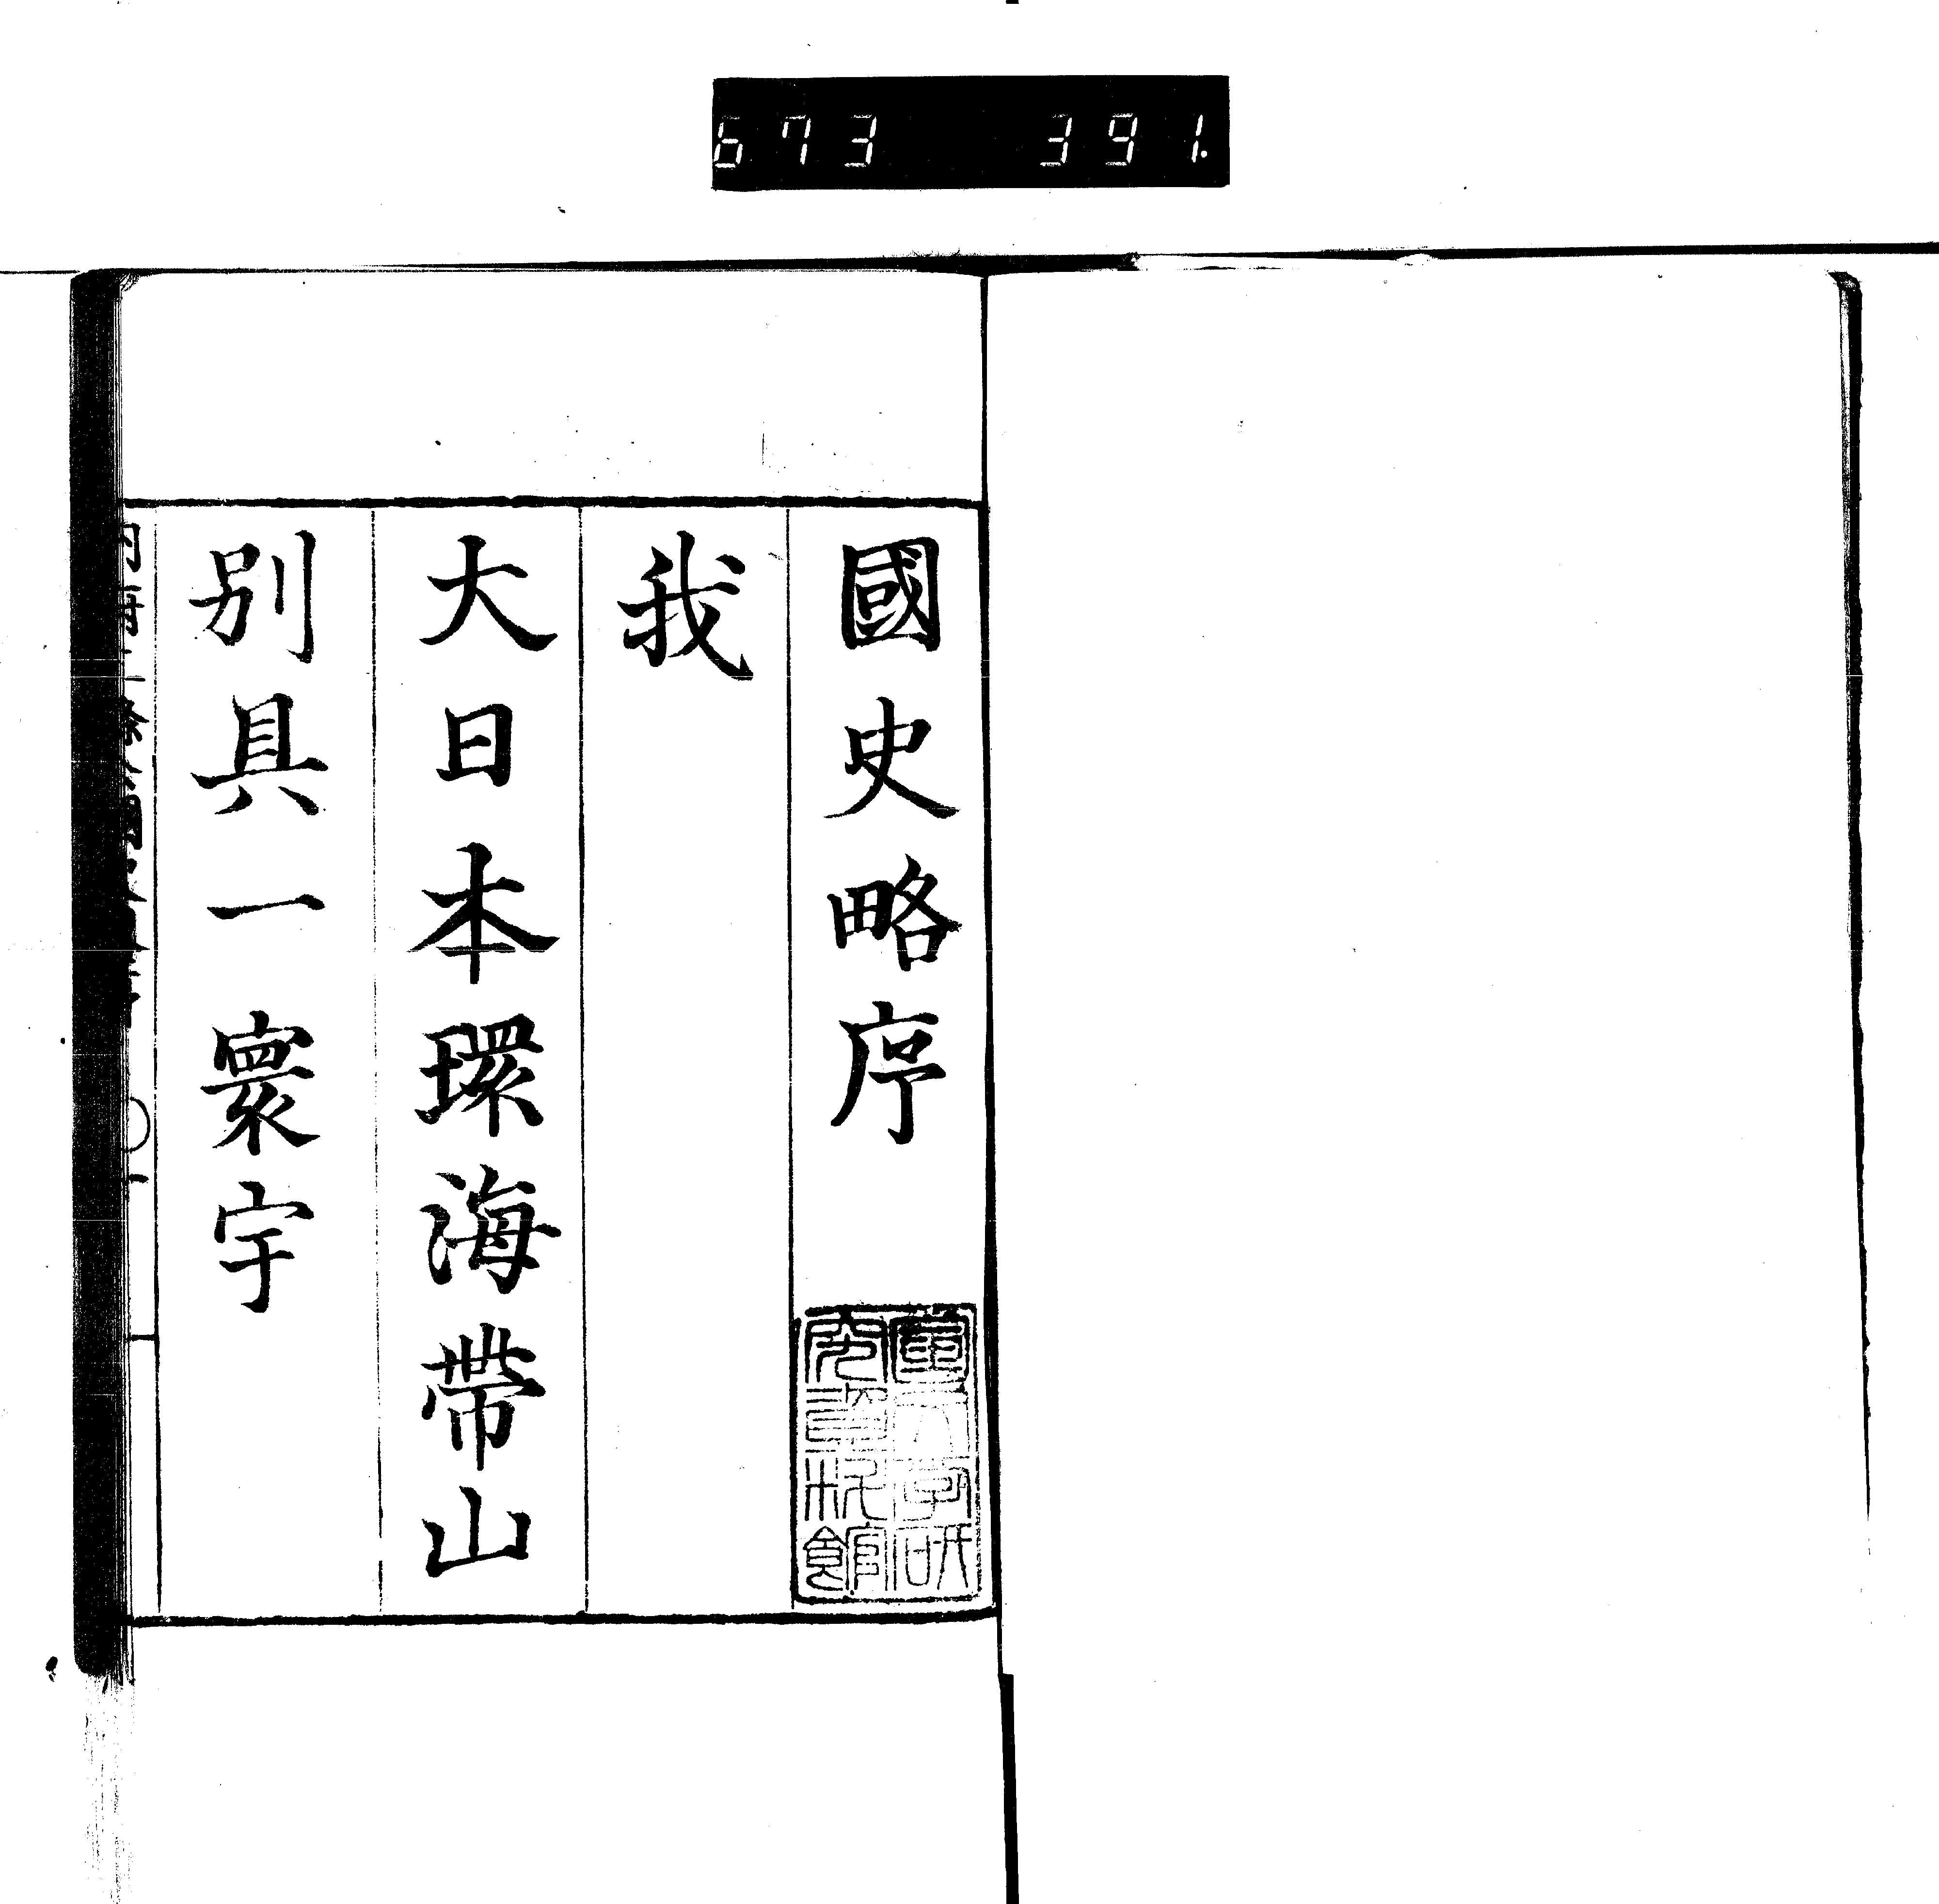 673 391.
國史略序
我
大日本環海帶山
別具一寰宇